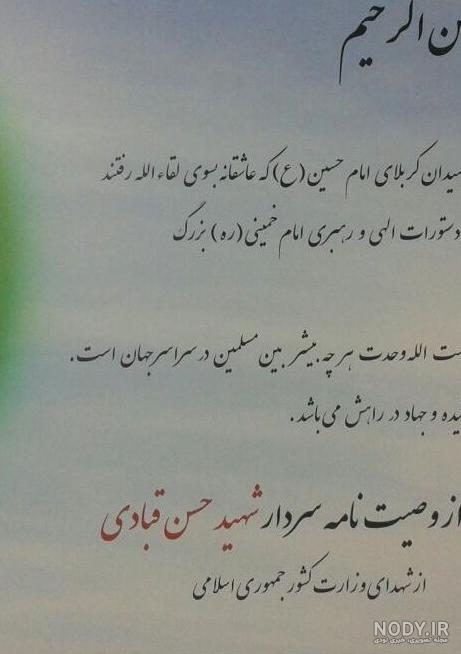 ن الرحیم
یدان کربلای امام حسین (ع) که عاشقانه بسوی لقاء الله رفتند
دستورات الهی و رهبری امام خمینی (ره) بزرگ
ت الله وحدت هر چه بیشتر بین مسلمین در سراسر جهان است.
یده و جهاد در راهش می باشد.
از وصیت نامه سردار شهید حسن قبادی
از شهدای وزارت کشور جمهوری اسلامی
NODY.IR
مجله تصویری، خبری نودی